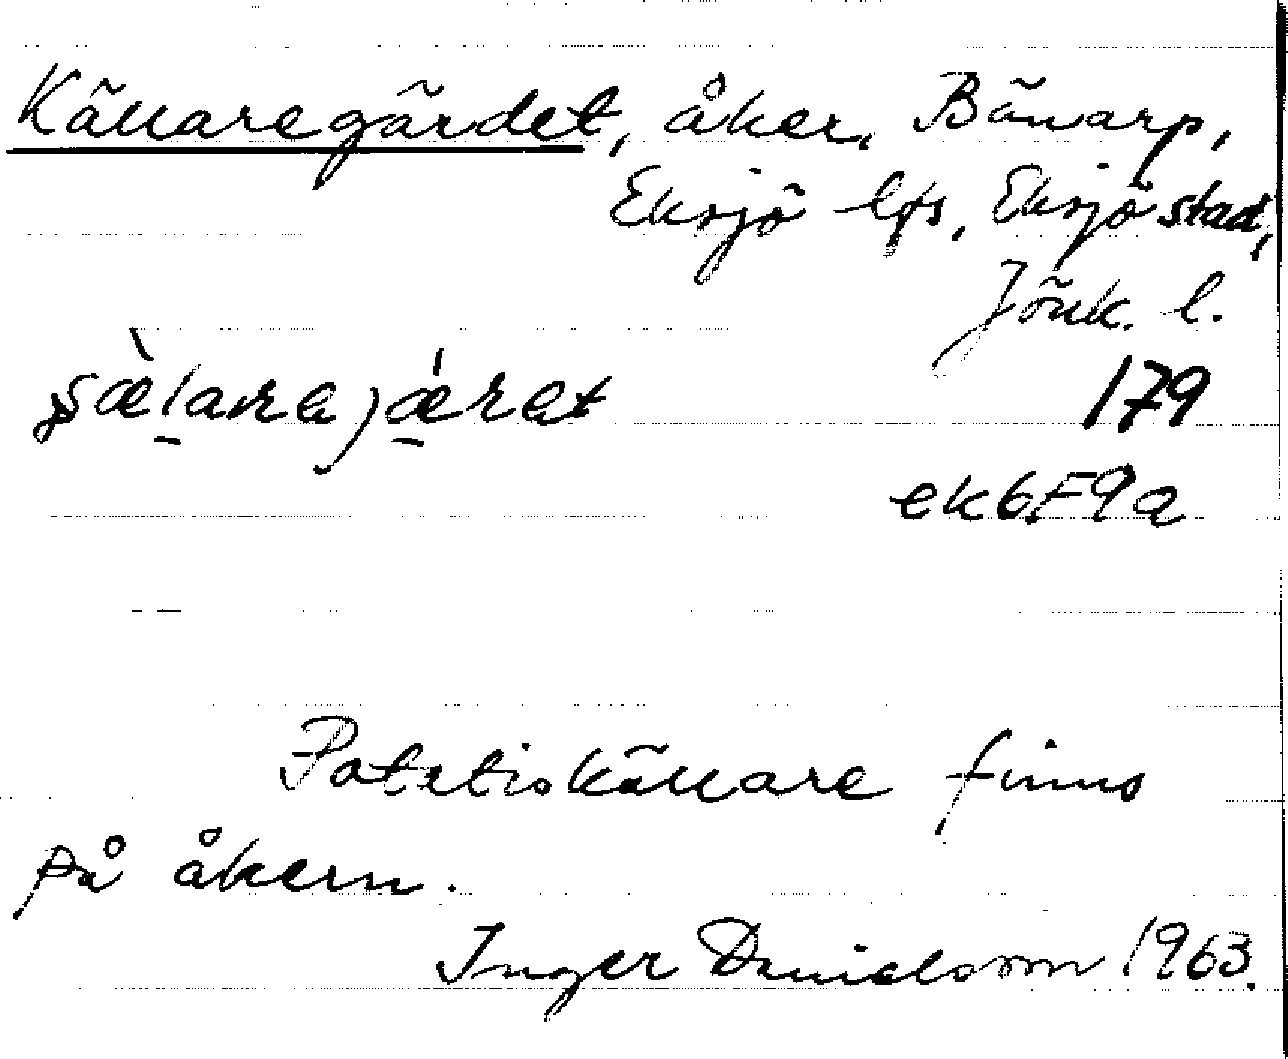 Källaregärdet, åker, Bänarp,
Eksjö lfs, Eksjö stad,
Jönk. l.
179
ek6F9a
Potatiskällare finns
på åkern.
Inger Danielsson 1963.